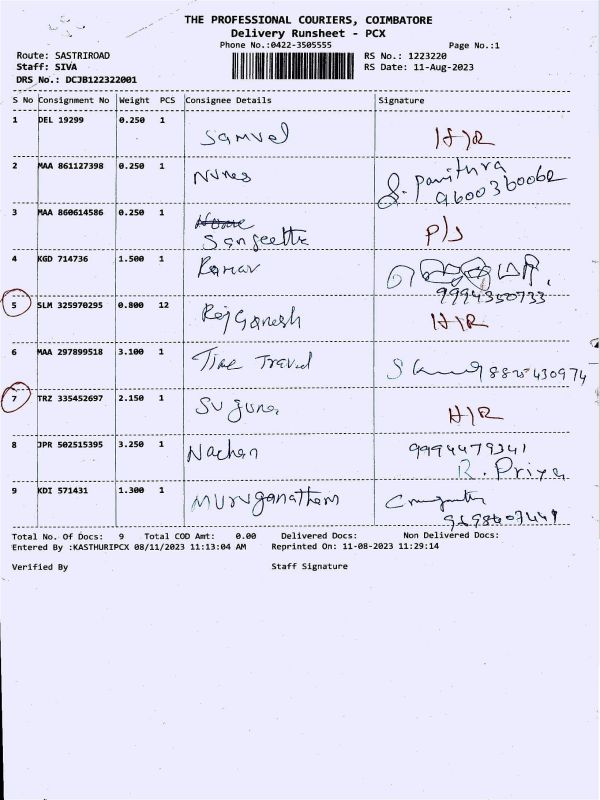 THE PROFESSIONAL COURIERS, COIMBATORE
Delivery Runsheet - PCX
Phone No.:0422-3505555 Page No.:1
Route: SASTRIROAD RS No.: 1223220
Staff: SIVA RS Date: 11-Aug-2023
DRS No.: DCJB122322001
S No Consignment No Weight PCS Consignee Details Signature
1 DEL 19299 0.250 1
Samuel H/R
2 MAA 861127398 0.250 1
S. Pavithra
9600360062
3 MAA 860614586 0.250 1
Sangeetha P/S
4 KGD 714736 1.500 1
9994350733
5 SLM 325970295 0.800 12
Raj Ganesh H/R
6 MAA 297899518 3.100 1
Time Travel
7 TRZ 335452697 2.150 1
Suguna H/R
8 JPR 502515395 3.250 1
9994479341
Nachan R. Priya
9 KDI 571431 1.300 1
Muruganatham
Total No. Of Docs: 9 Total COD Amt: 0.00 Delivered Docs: Non Delivered Docs:
Entered By :KASTHURIPCX 08/11/2023 11:13:04 AM Reprinted On: 11-08-2023 11:29:14
Verified By Staff Signature